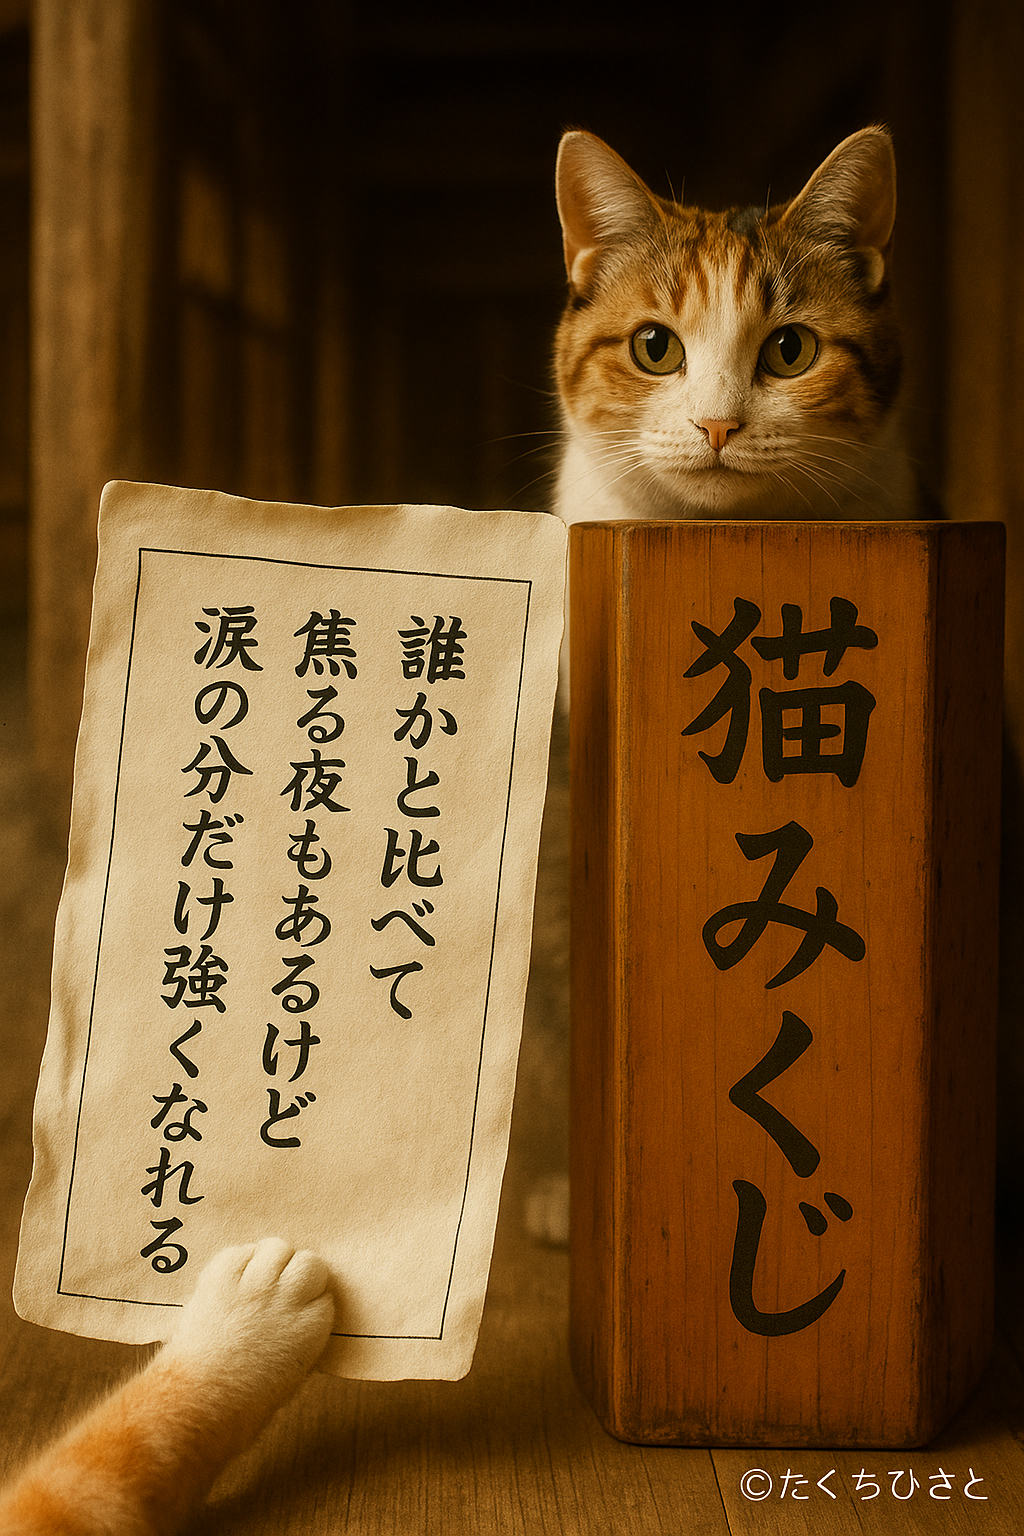 誰かと比べて
焦る夜もあるけど
涙の分だけ強くなれる
猫みくじ
©たくちひさと